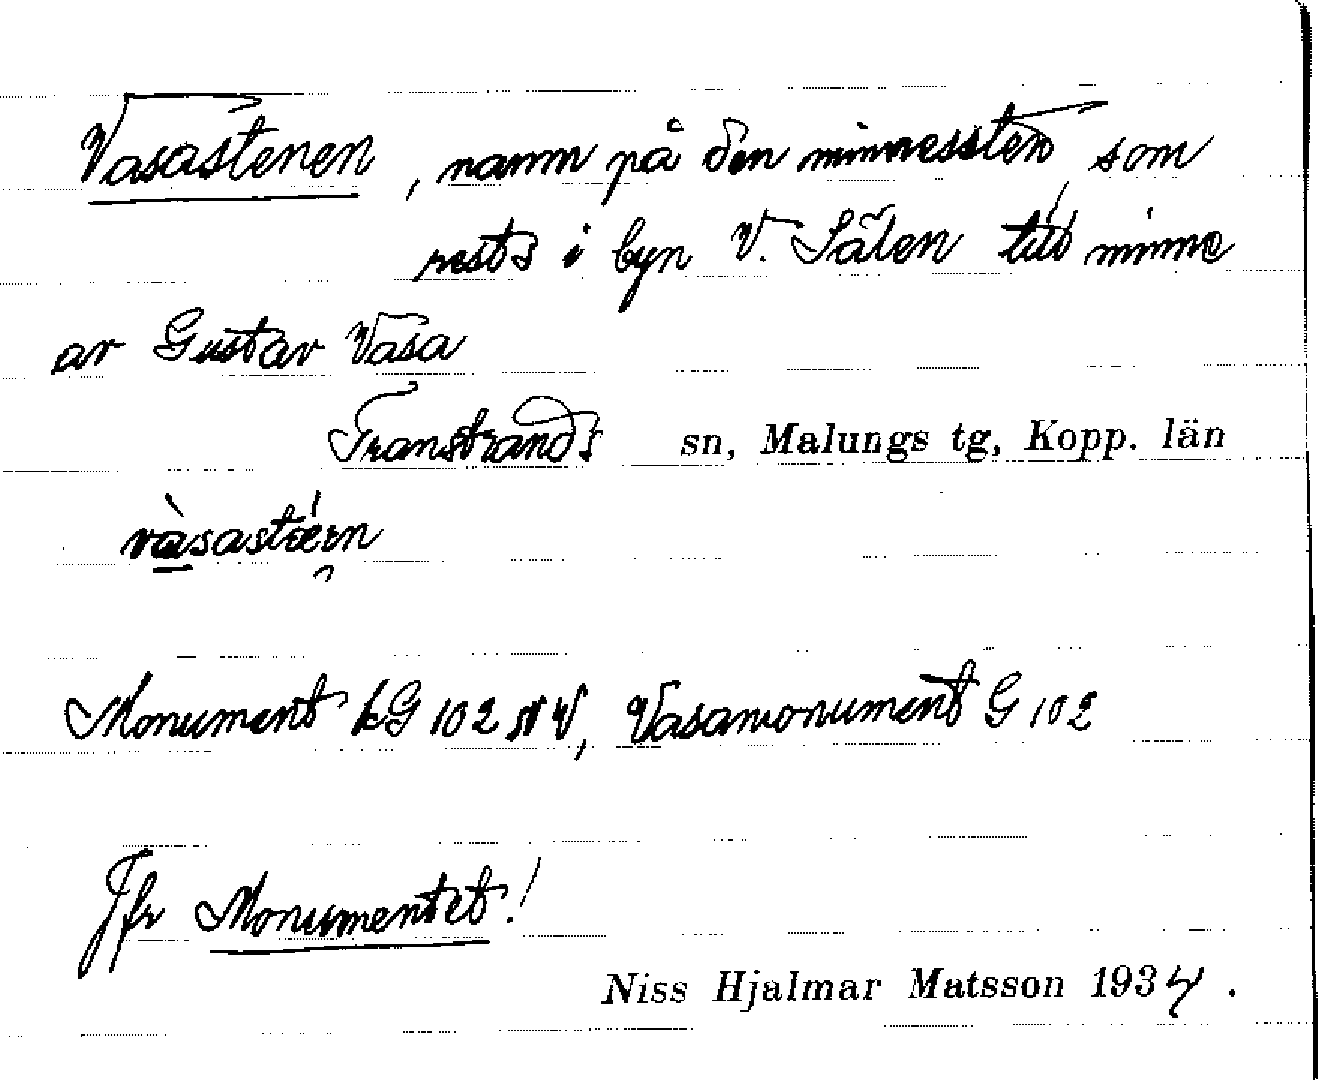 Vasastenen, namn på den minnessten som
rests i byn V. Sälen till minne
av Gustav Vasa
Transtrands sn, Malungs tg, Kopp. län
Monument kG 102 NV, Vasamonument G 102
Jfr Monumentet!
Niss Hjalmar Matsson 1934.